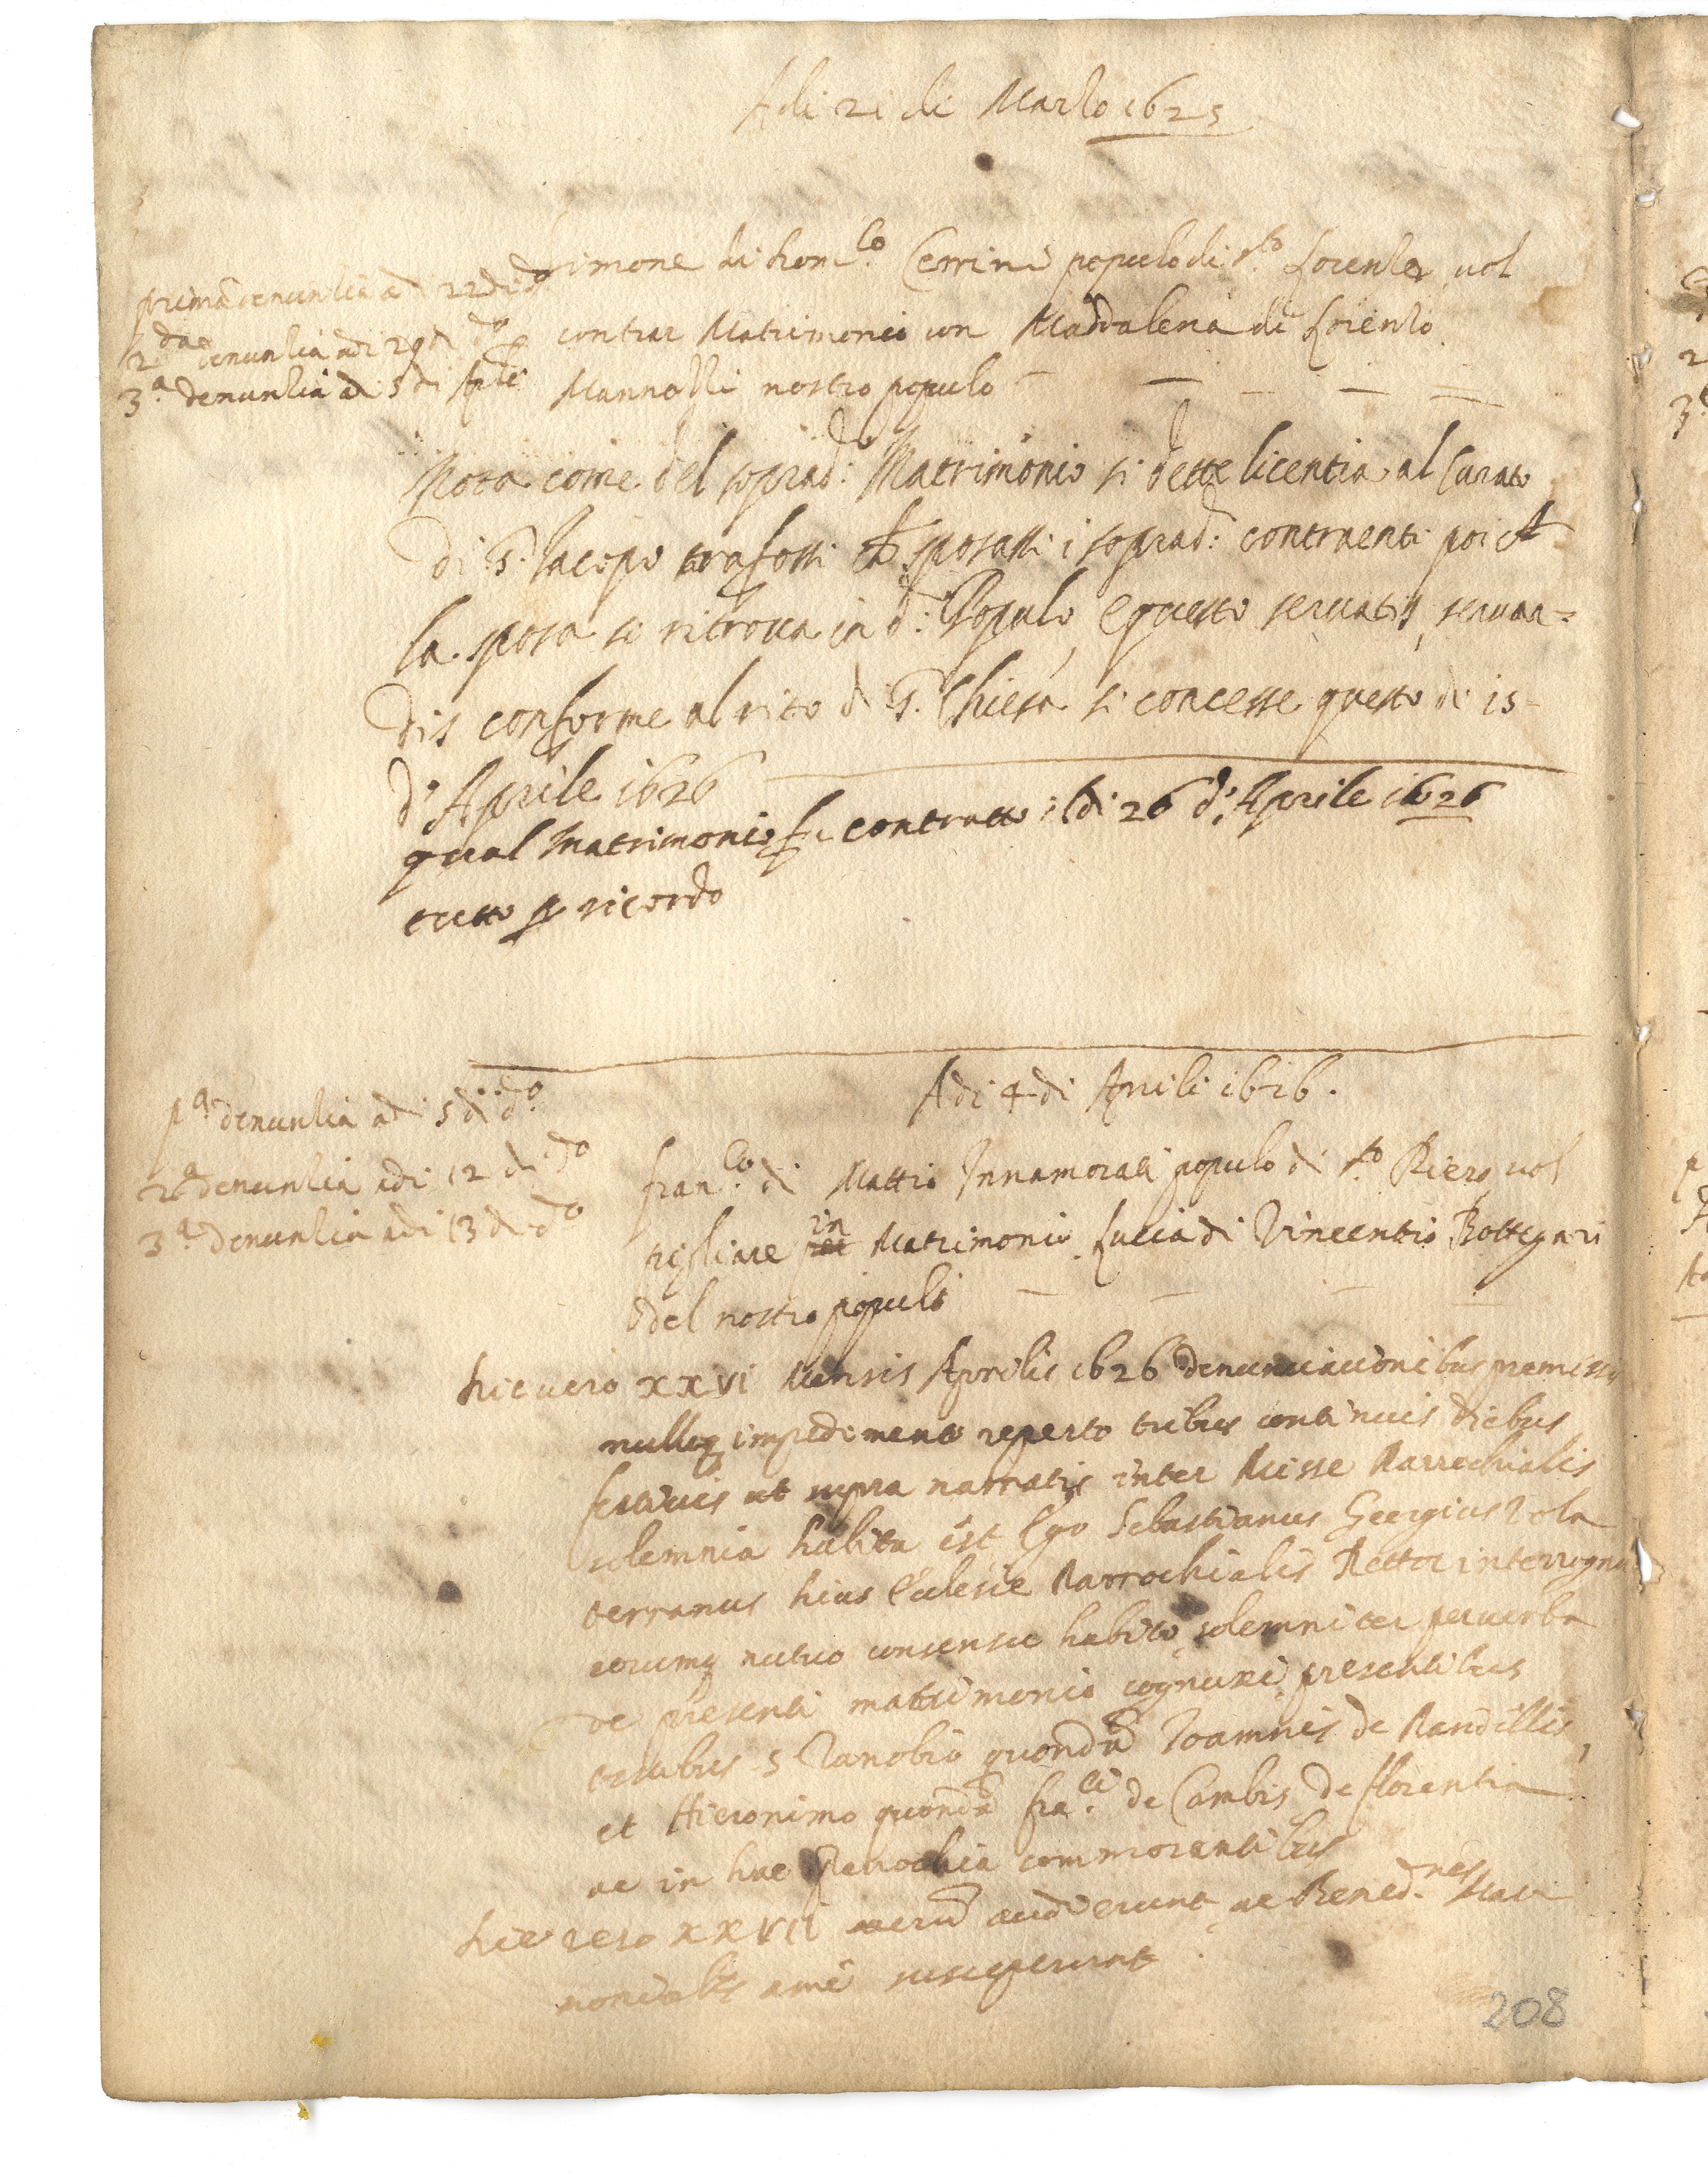 Adi 21 di Marzo 1625
Simone di Dom.co Cerrini populo di s.to Lorenzo vol
prima denuntia adi 22 di do
contrar Matrimonio con Maddalena di Lorenzo
2.da denuntia adi 29 di do
Mannozzi nostro populo
3.a denuntia adi 5 di Aple
Nota come del soprad: Matrimonio si dette licentia al Curato
di S. Iacopo tra fossi ch sposassi i soprad: contraenti poi ch
la sposa si ritrova in d: Populo, e questo servatis, servan=
dis conforme al rito di S. Chiesa si concesse questo di 15
d'Aprile 1626
qual matrimonio fu contratto il di 26 d'Aprile 1626
e per ricordo
Adi 4 di Aprile 1626.
p.a denuntia adi 5 di do
2.a denuntia adi 12 di do
3.a denuntia adi 13 di do
Fran.co di Mattio Innamorati populo di s.to Piero vol
pigliare in Matrimonio Lucia di Vincentio Bottegari
del nostro populo
hic vero XXVI Mensis Aprilis 1626 denunciacionibus premissis
nulloq impedimento reperto tribus continuis diebus
festivis ut supra narratis inter Misse Parrochialis
solemnia habita est Ego Sebastianus Georgius Vola
terranus huius Ecclesie Parrochialis Rettor interrogavi
eorumq mutuo consensu habito solemniter per verba
de presenti matrimonio coniunxi presentibus
testibus s Zanobio quonda Ioannis de Pandilli
et Hieronimo quonda fra.ci de Cambis de florentia
ac in hac Parrochia commorantibus
hic vero XXVII audierunt ac Bened.nes
moniales a me susceperunt
208